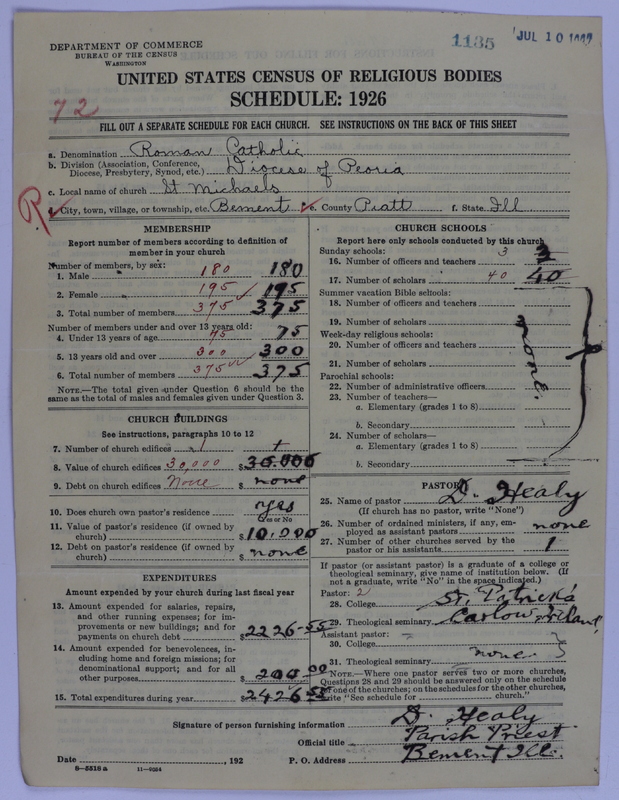 DEPARTMENT OF COMMERCE
BUREAU OF THE CENSUS
WASHINGTON
1135
JUL 10
UNITED STATES CENSUS OF RELIGIOUS BODIES
SCHEDULE: 1926
72
FILL OUT A SEPARATE SCHEDULE FOR EACH CHURCH. SEE INSTRUCTIONS ON THE BACK OF THIS SHEET
a. Denomination Roman Catholic
b. Division (Association, Conference, Diocese, Presbytery, Synod, etc.) Diocese of Peoria
c. Local name of church St Michaels
R
d. City, town, village, or township, etc. Bement e. County Piatt f. State Ill
MEMBERSHIP
Report number of members according to definition of
member in your church
Number of members, by sex:
1. Male 180 180
2. Female 195 195
3. Total number of members 375 375
Number of members under and over 13 years old:
4. Under 13 years of age 75 75
5. 13 years old and over 300 300
6. Total number of members 375 375
NOTE.—The total given under Question 6 should be the
same as the total of males and females given under Question 3.
CHURCH BUILDINGS
See instructions, paragraphs 10 to 12
7. Number of church edifices 1
8. Value of church edifices 30,000 $ 30.000
9. Debt on church edifices None $ none
10. Does church own pastor's residence yes
Yes or No
11. Value of pastor's residence (if owned by
church) $ 10,000
12. Debt on pastor's residence (if owned by
church) $ none
EXPENDITURES
Amount expended by your church during last fiscal year
13. Amount expended for salaries, repairs,
and other running expenses; for im-
provements or new buildings; and for
payments on church debt $ 2226-55
14. Amount expended for benevolences, in-
cluding home and foreign missions; for
denominational support; and for all
other purposes $ 200.00
15. Total expenditures during year $ 2426-55
CHURCH SCHOOLS
Report here only schools conducted by this church
Sunday schools:
16. Number of officers and teachers 3 3
17. Number of scholars 40 40
Summer vacation Bible schools:
18. Number of officers and teachers
19. Number of scholars
Week-day religious schools:
20. Number of officers and teachers
21. Number of scholars
none.
Parochial schools:
22. Number of administrative officers
23. Number of teachers—
a. Elementary (grades 1 to 8)
b. Secondary
24. Number of scholars—
a. Elementary (grades 1 to 8)
b. Secondary
PASTOR
25. Name of pastor D. Healy
(If church has no pastor, write "None")
26. Number of ordained ministers, if any, em-
ployed as assistant pastors none
27. Number of other churches served by the
pastor or his assistants 1
If pastor (or assistant pastor) is a graduate of a college or
theological seminary, give name of institution below. (If
not a graduate, write "No" in the space indicated.)
Pastor: 2
28. College St. Patrick's
29. Theological seminary Carlow, Ireland,
Assistant pastor:
30. College
none.
31. Theological seminary
NOTE.—Where one pastor serves two or more churches,
Questions 28 and 29 should be answered only on the schedule
for one of the churches; on the schedules for the other churches,
write "See schedule for church."
Signature of person furnishing information D. Healy
Official title Parish Priest
Date , 192 P. O. Address Bement Ill.
8-5518 a 11-9264